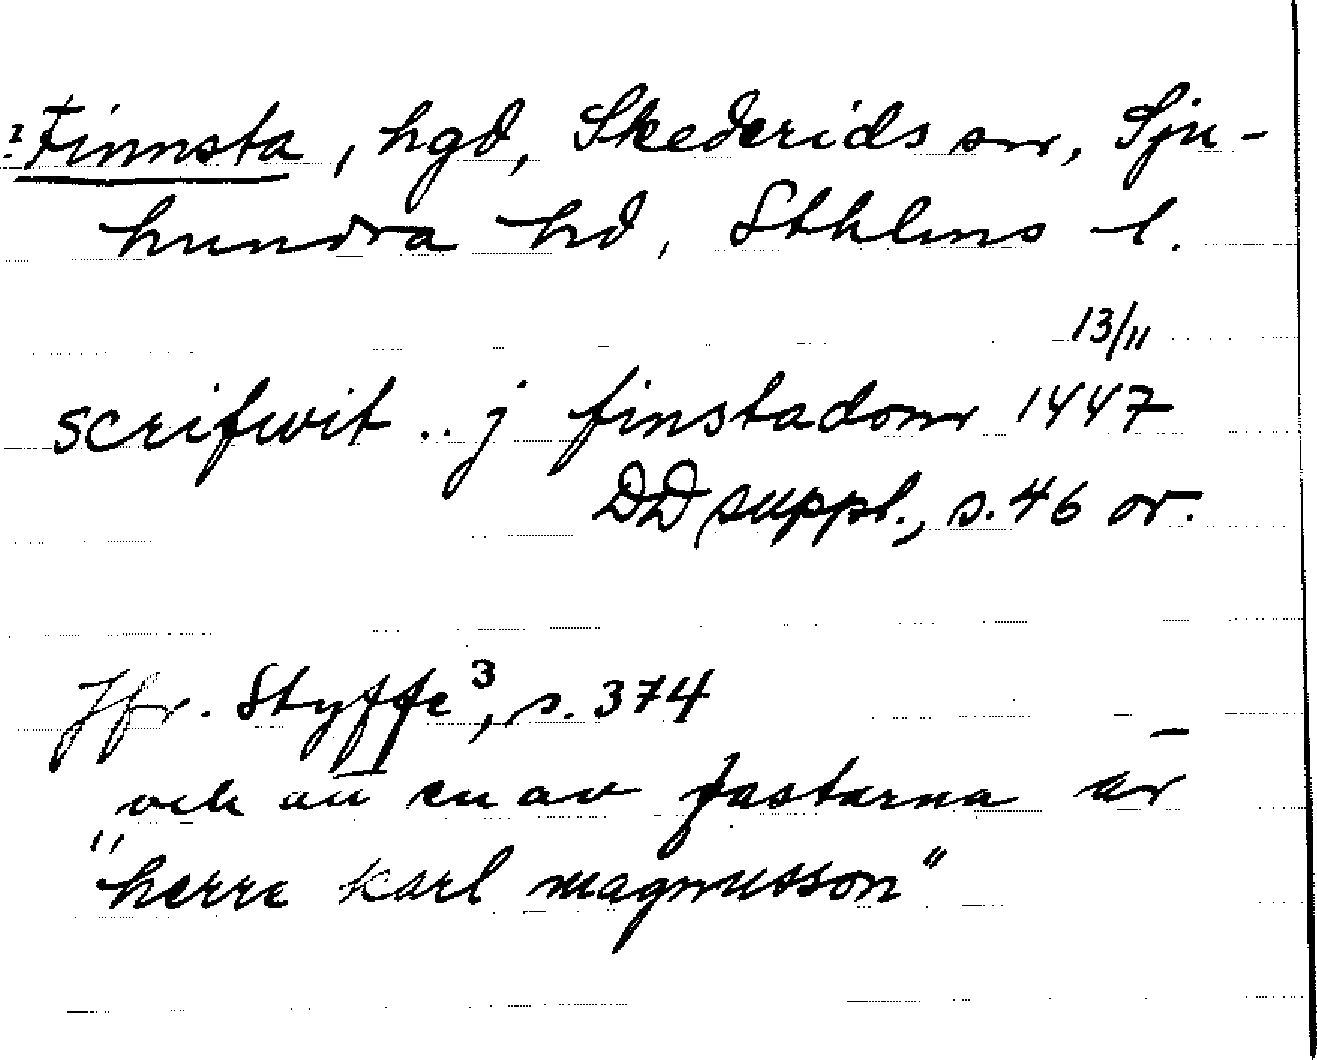 ? Finnsta, hgd, Skederids sn, Sju-
hundra hd, Sthlms l.
13/11
scrifwit .. j finstadom 1447
DD suppl., s. 46 or.
Jfr. Styffe³, s. 374
och att en av fastarna är
"herre karl magnusson"